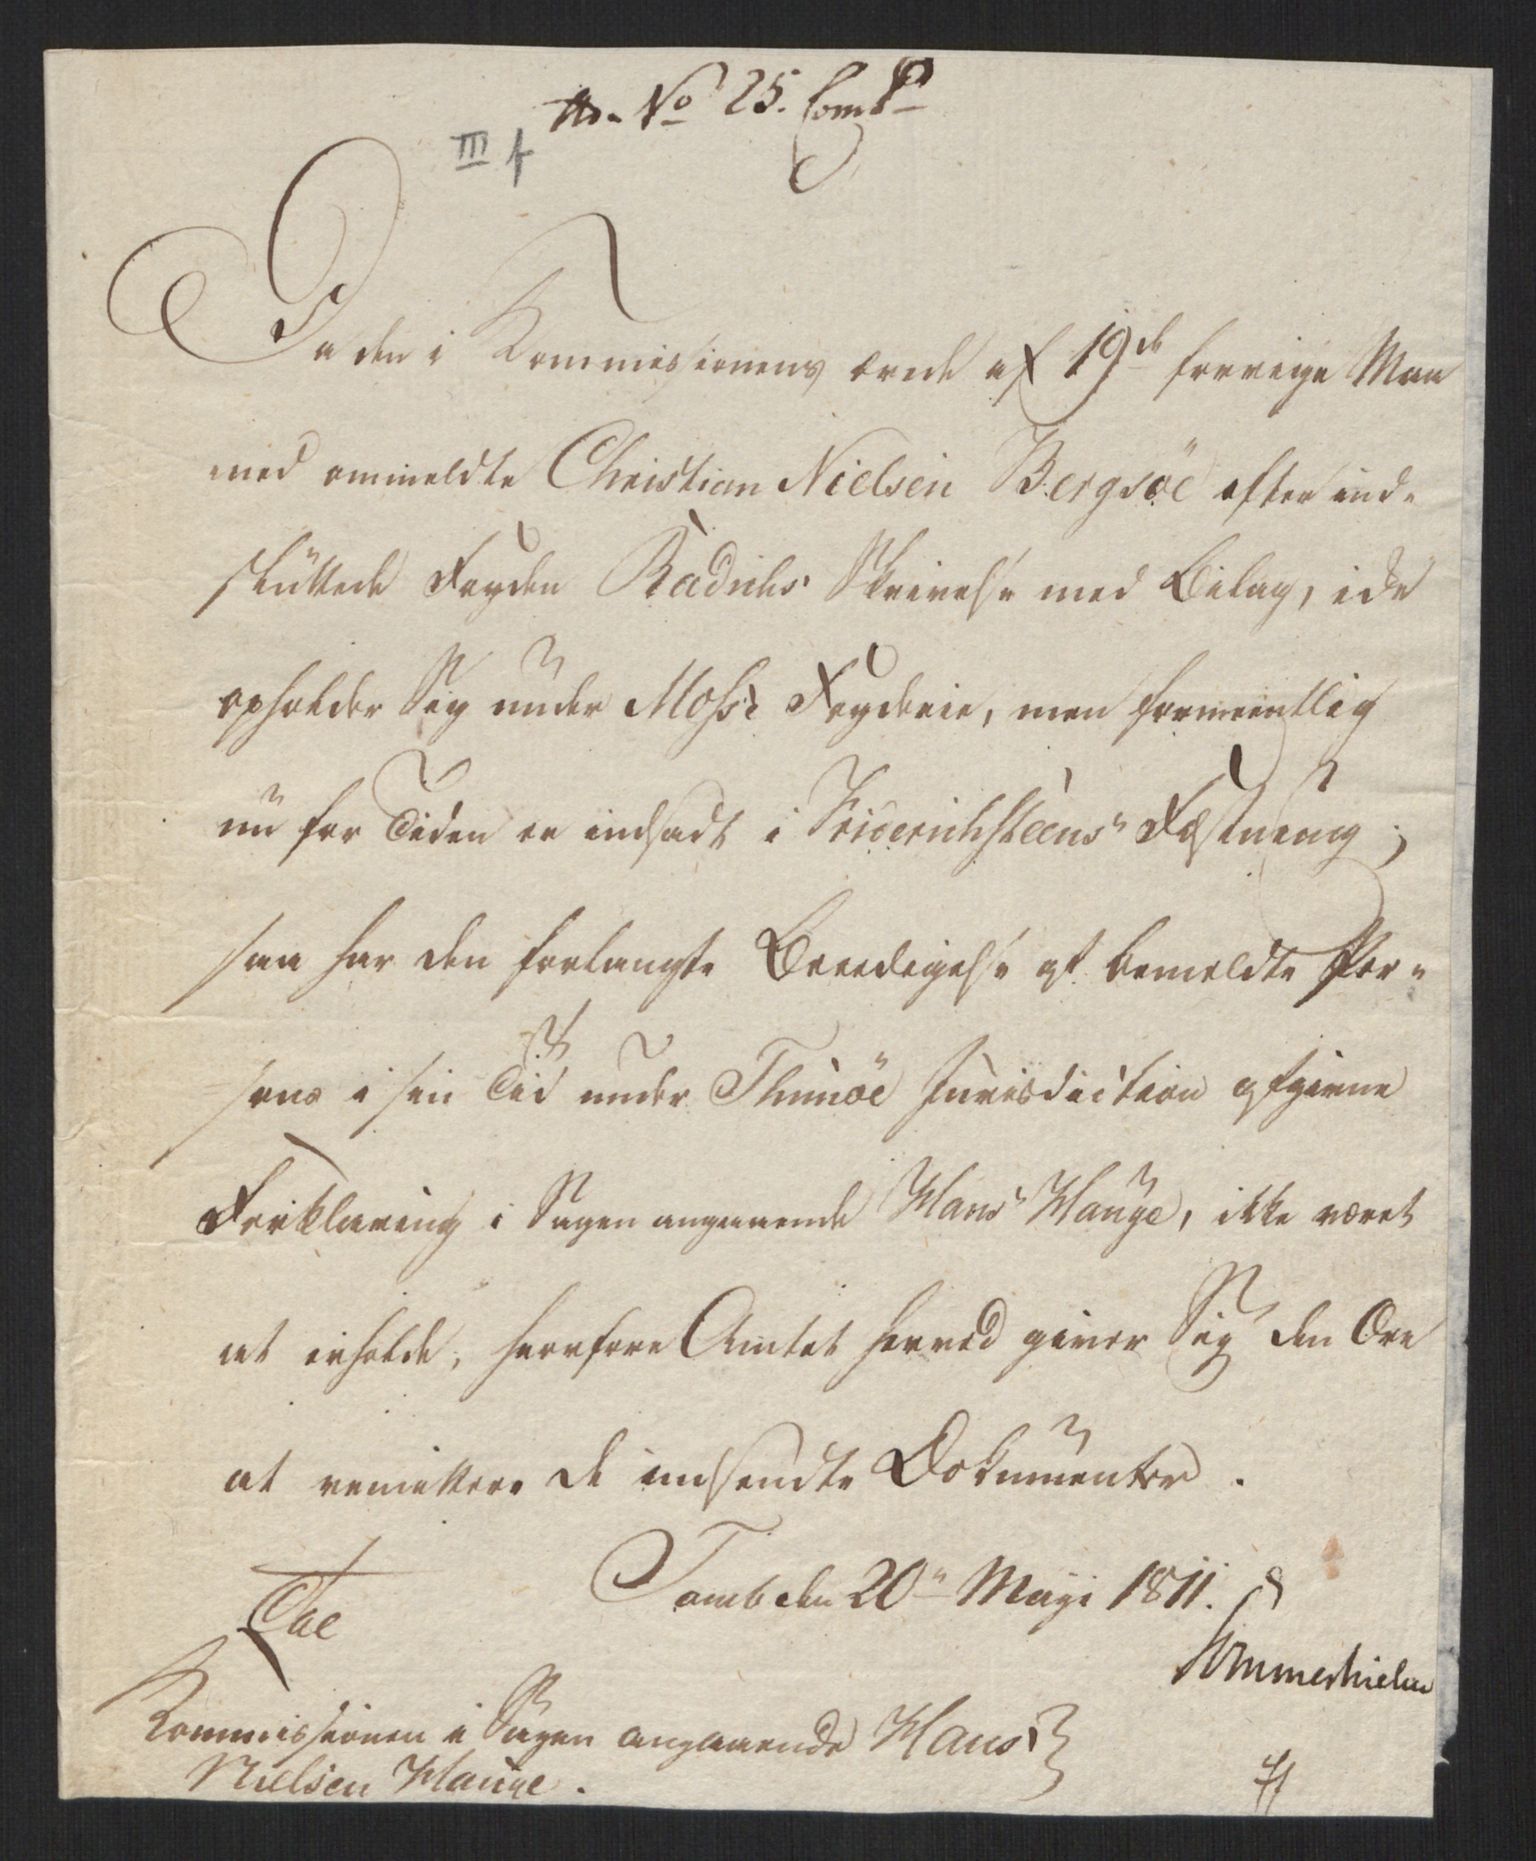 No 25.
III f
Da den i Kommissionens ærede af 19de forrige Maa
ned ommeldte Christian Nielsen Bergsöe efter ind-
sluttede Fogden Radichs Skrivelse med Bilag, ikke
opholder Sig under Mosse Fogderie, men formeentlig
nu for Tiden er indsadt i Friderichsteens Fæstning;
saa har den forlangte Beeedigelse af bemeldte Per-
sons i sin Tid under Thunöe Jurisdiction afgivne
Forklaring i Sagen angaaende Hans Hauge, ikke været
at erholde, hvorfore Amtet herved giver Sig den Ære
at remittere de indsendte Dokumenter.
Tomb den 20n Mayi 1811.
Sommerhielm
Til
Kommissionen i Sagen angaaende Hans
Nielsen Hauge.